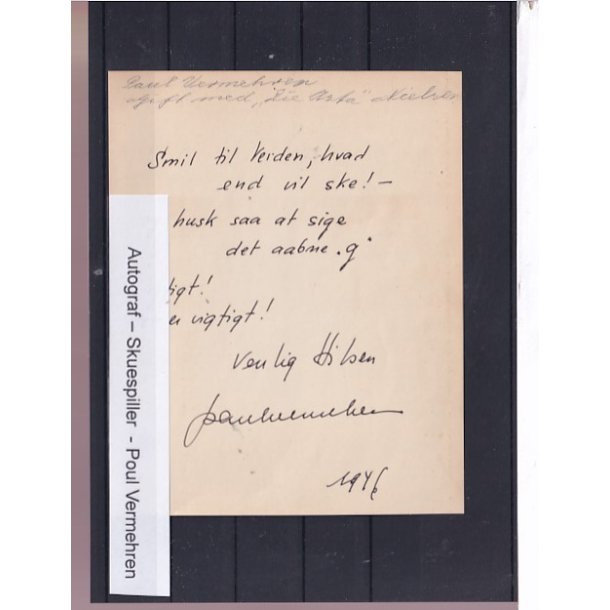 Paul Vermehren
gift med „Die Asta" Nielsen
Smil til Verden, hvad
end vil ske! –
husk saa at sige
det aabne „g"
igt!
er vigtigt!
Venlig Hilsen
paulvermehren
1946
Autograf – Skuespiller - Poul Vermehren